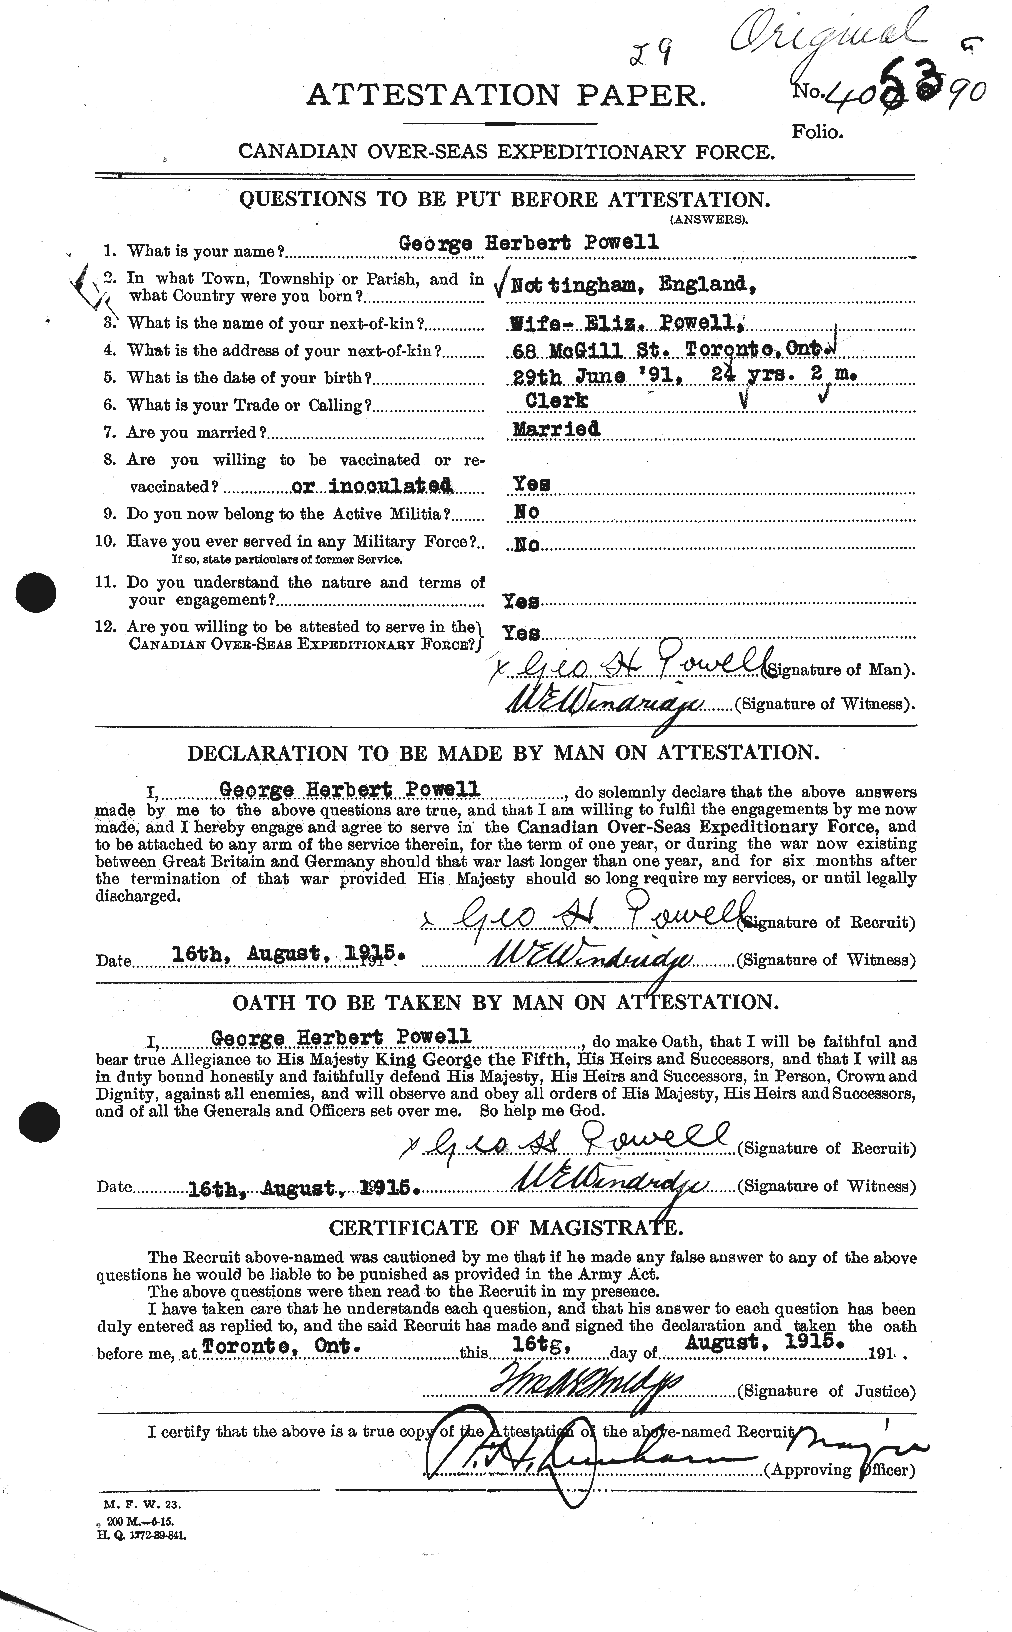 Original
29
ATTESTATION PAPER.
No. 90
Folio.
CANADIAN OVER-SEAS EXPEDITIONARY FORCE.
QUESTIONS TO BE PUT BEFORE ATTESTATION.
(ANSWERS).
1. What is your name? George Herbert Powell
2. In what Town, Township or Parish, and in
what Country were you born? Nottingham, England,
3. What is the name of your next-of-kin? Wife- Eliz. Powell,
4. What is the address of your next-of-kin? 68 McGill St. Toronto, Ont.
5. What is the date of your birth? 29th June '91, 24 yrs. 2 m.
6. What is your Trade or Calling? Clerk
7. Are you married? Married
8. Are you willing to be vaccinated or re-
vaccinated? or inoculated Yes
9. Do you now belong to the Active Militia? No
10. Have you ever served in any Military Force? No
If so, state particulars of former Service.
11. Do you understand the nature and terms of
your engagement? Yes
12. Are you willing to be attested to serve in the
CANADIAN OVER-SEAS EXPEDITIONARY FORCE? Yes
x Geo H Powell (Signature of Man).
W E Windridge (Signature of Witness).
DECLARATION TO BE MADE BY MAN ON ATTESTATION.
I, George Herbert Powell, do solemnly declare that the above answers
made by me to the above questions are true, and that I am willing to fulfil the engagements by me now
made, and I hereby engage and agree to serve in the Canadian Over-Seas Expeditionary Force, and
to be attached to any arm of the service therein, for the term of one year, or during the war now existing
between Great Britain and Germany should that war last longer than one year, and for six months after
the termination of that war provided His Majesty should so long require my services, or until legally
discharged.
x Geo H. Powell (Signature of Recruit)
Date 16th, August, 1915. W E Windridge (Signature of Witness)
OATH TO BE TAKEN BY MAN ON ATTESTATION.
I, George Herbert Powell, do make Oath, that I will be faithful and
bear true Allegiance to His Majesty King George the Fifth, His Heirs and Successors, and that I will as
in duty bound honestly and faithfully defend His Majesty, His Heirs and Successors, in Person, Crown and
Dignity, against all enemies, and will observe and obey all orders of His Majesty, His Heirs and Successors,
and of all the Generals and Officers set over me. So help me God.
x Geo H Powell (Signature of Recruit)
Date 16th, August, 1915. W E Windridge (Signature of Witness)
CERTIFICATE OF MAGISTRATE.
The Recruit above-named was cautioned by me that if he made any false answer to any of the above
questions he would be liable to be punished as provided in the Army Act.
The above questions were then read to the Recruit in my presence.
I have taken care that he understands each question, and that his answer to each question has been
duly entered as replied to, and the said Recruit has made and signed the declaration and taken the oath
before me, at Toronto, Ont. this 16tg, day of August, 1915. 191 .
(Signature of Justice)
I certify that the above is a true copy of the Attestation of the above-named Recruit.
Major
(Approving Officer)
M. F. W. 23.
200 M.—6-15.
H. Q. 1772-39-841.